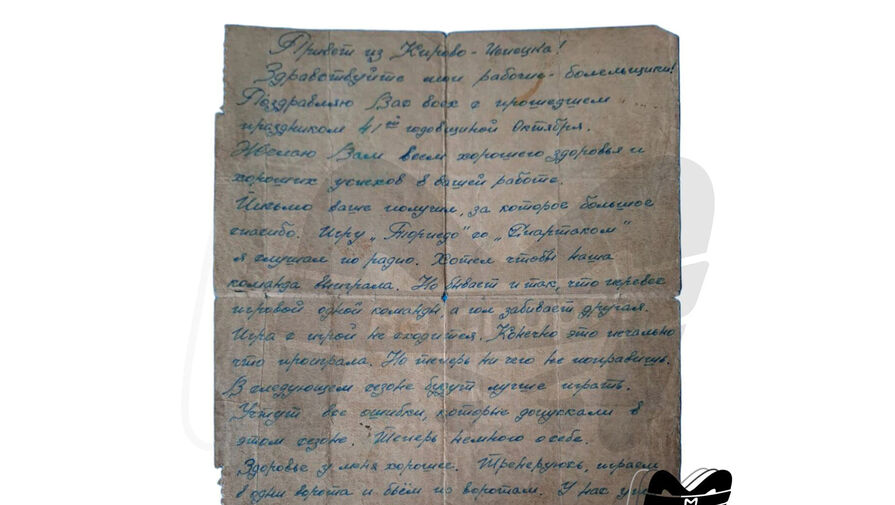 Привет из Кирово-Чепецка!
Здравствуйте мои рабочие-болельщики!
Поздравляю Вас всех с прошедшем
праздником 41ой годовщиной Октября.
Желаю Вам всем хорошего здоровья и
хороших успехов в вашей работе.
Письмо ваше получил, за которое большое
спасибо. Игру „Торпедо" со „Спартаком"
я слушал по радио. Хотел чтобы наша
команда выиграла. Но бывает и так, что перевес
игровой одной команды, а гол забивает другая.
Игра с игрой не сходится. Конечно это печально
что проиграла. Но теперь ни чего не поправишь.
В следующем сезоне будут лучше играть.
Учтут все ошибки, которые допускали в
этом сезоне. Теперь немного о себе.
Здоровье у меня хорошее. Тренеруюсь, играем
в одни ворота и бьём по воротам. У нас уже